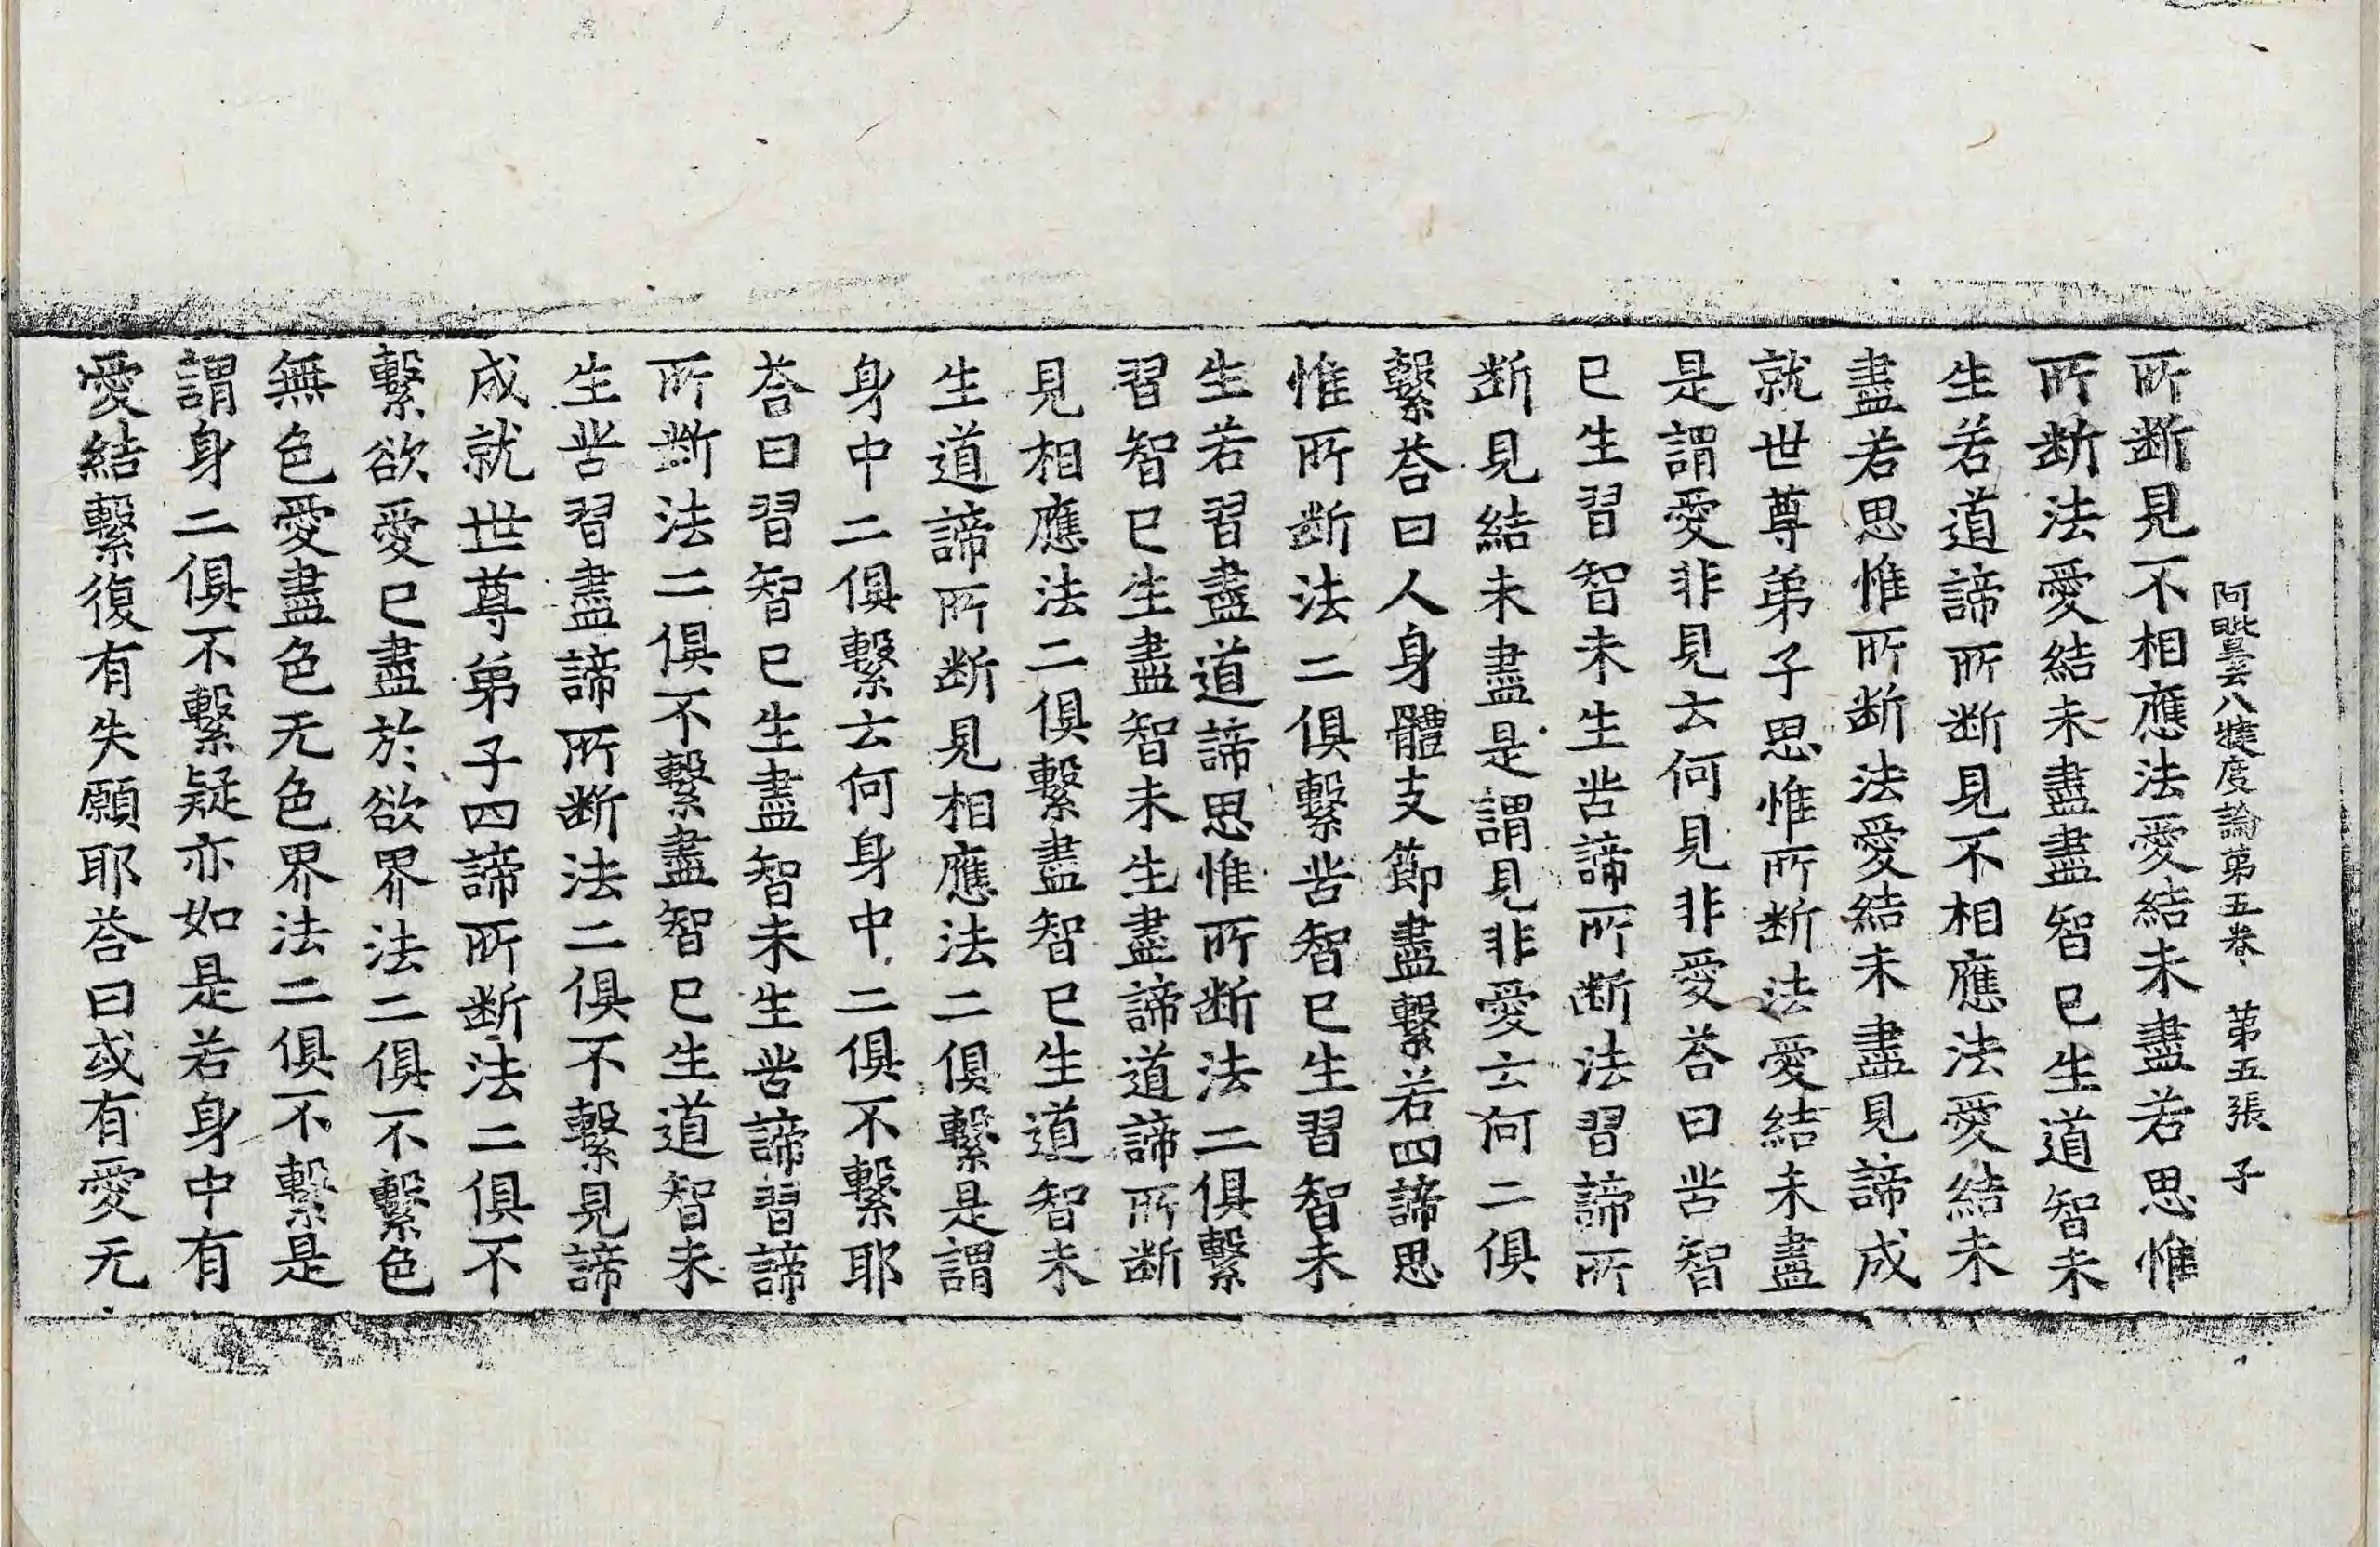 阿毗曇八揵度論第五卷 第五張 子
所斷見不相應法愛結未盡若思惟
所斷法愛結未盡盡智已生道智未
生若道諦所斷見不相應法愛結未
盡若思惟所斷法愛結未盡見諦成
就世尊弟子思惟所斷法愛結未盡
是謂愛非見云何見非愛荅曰苦智
已生習智未生苦諦所斷法習諦所
斷見結未盡是謂見非愛云何二俱
繫荅曰人身體支節盡繫若四諦思
惟所斷法二俱繫苦智已生習智未
生若習盡道諦思惟所斷法二俱繫
習智已生盡智未生盡諦道諦所斷
見相應法二俱繫盡智已生道智未
生道諦所斷見相應法二俱繫是謂
身中二俱繫云何身中二俱不繫耶
荅曰習智已生盡智未生苦諦習諦
所斷法二俱不繫盡智已生道智未
生苦習盡諦所斷法二俱不繫見諦
成就世尊弟子四諦所斷法二俱不
繫欲愛已盡於欲界法二俱不繫色
無色愛盡色无色界法二俱不繫是
謂身二俱不繫疑亦如是若身中有
愛結繫復有失願耶荅曰或有愛无